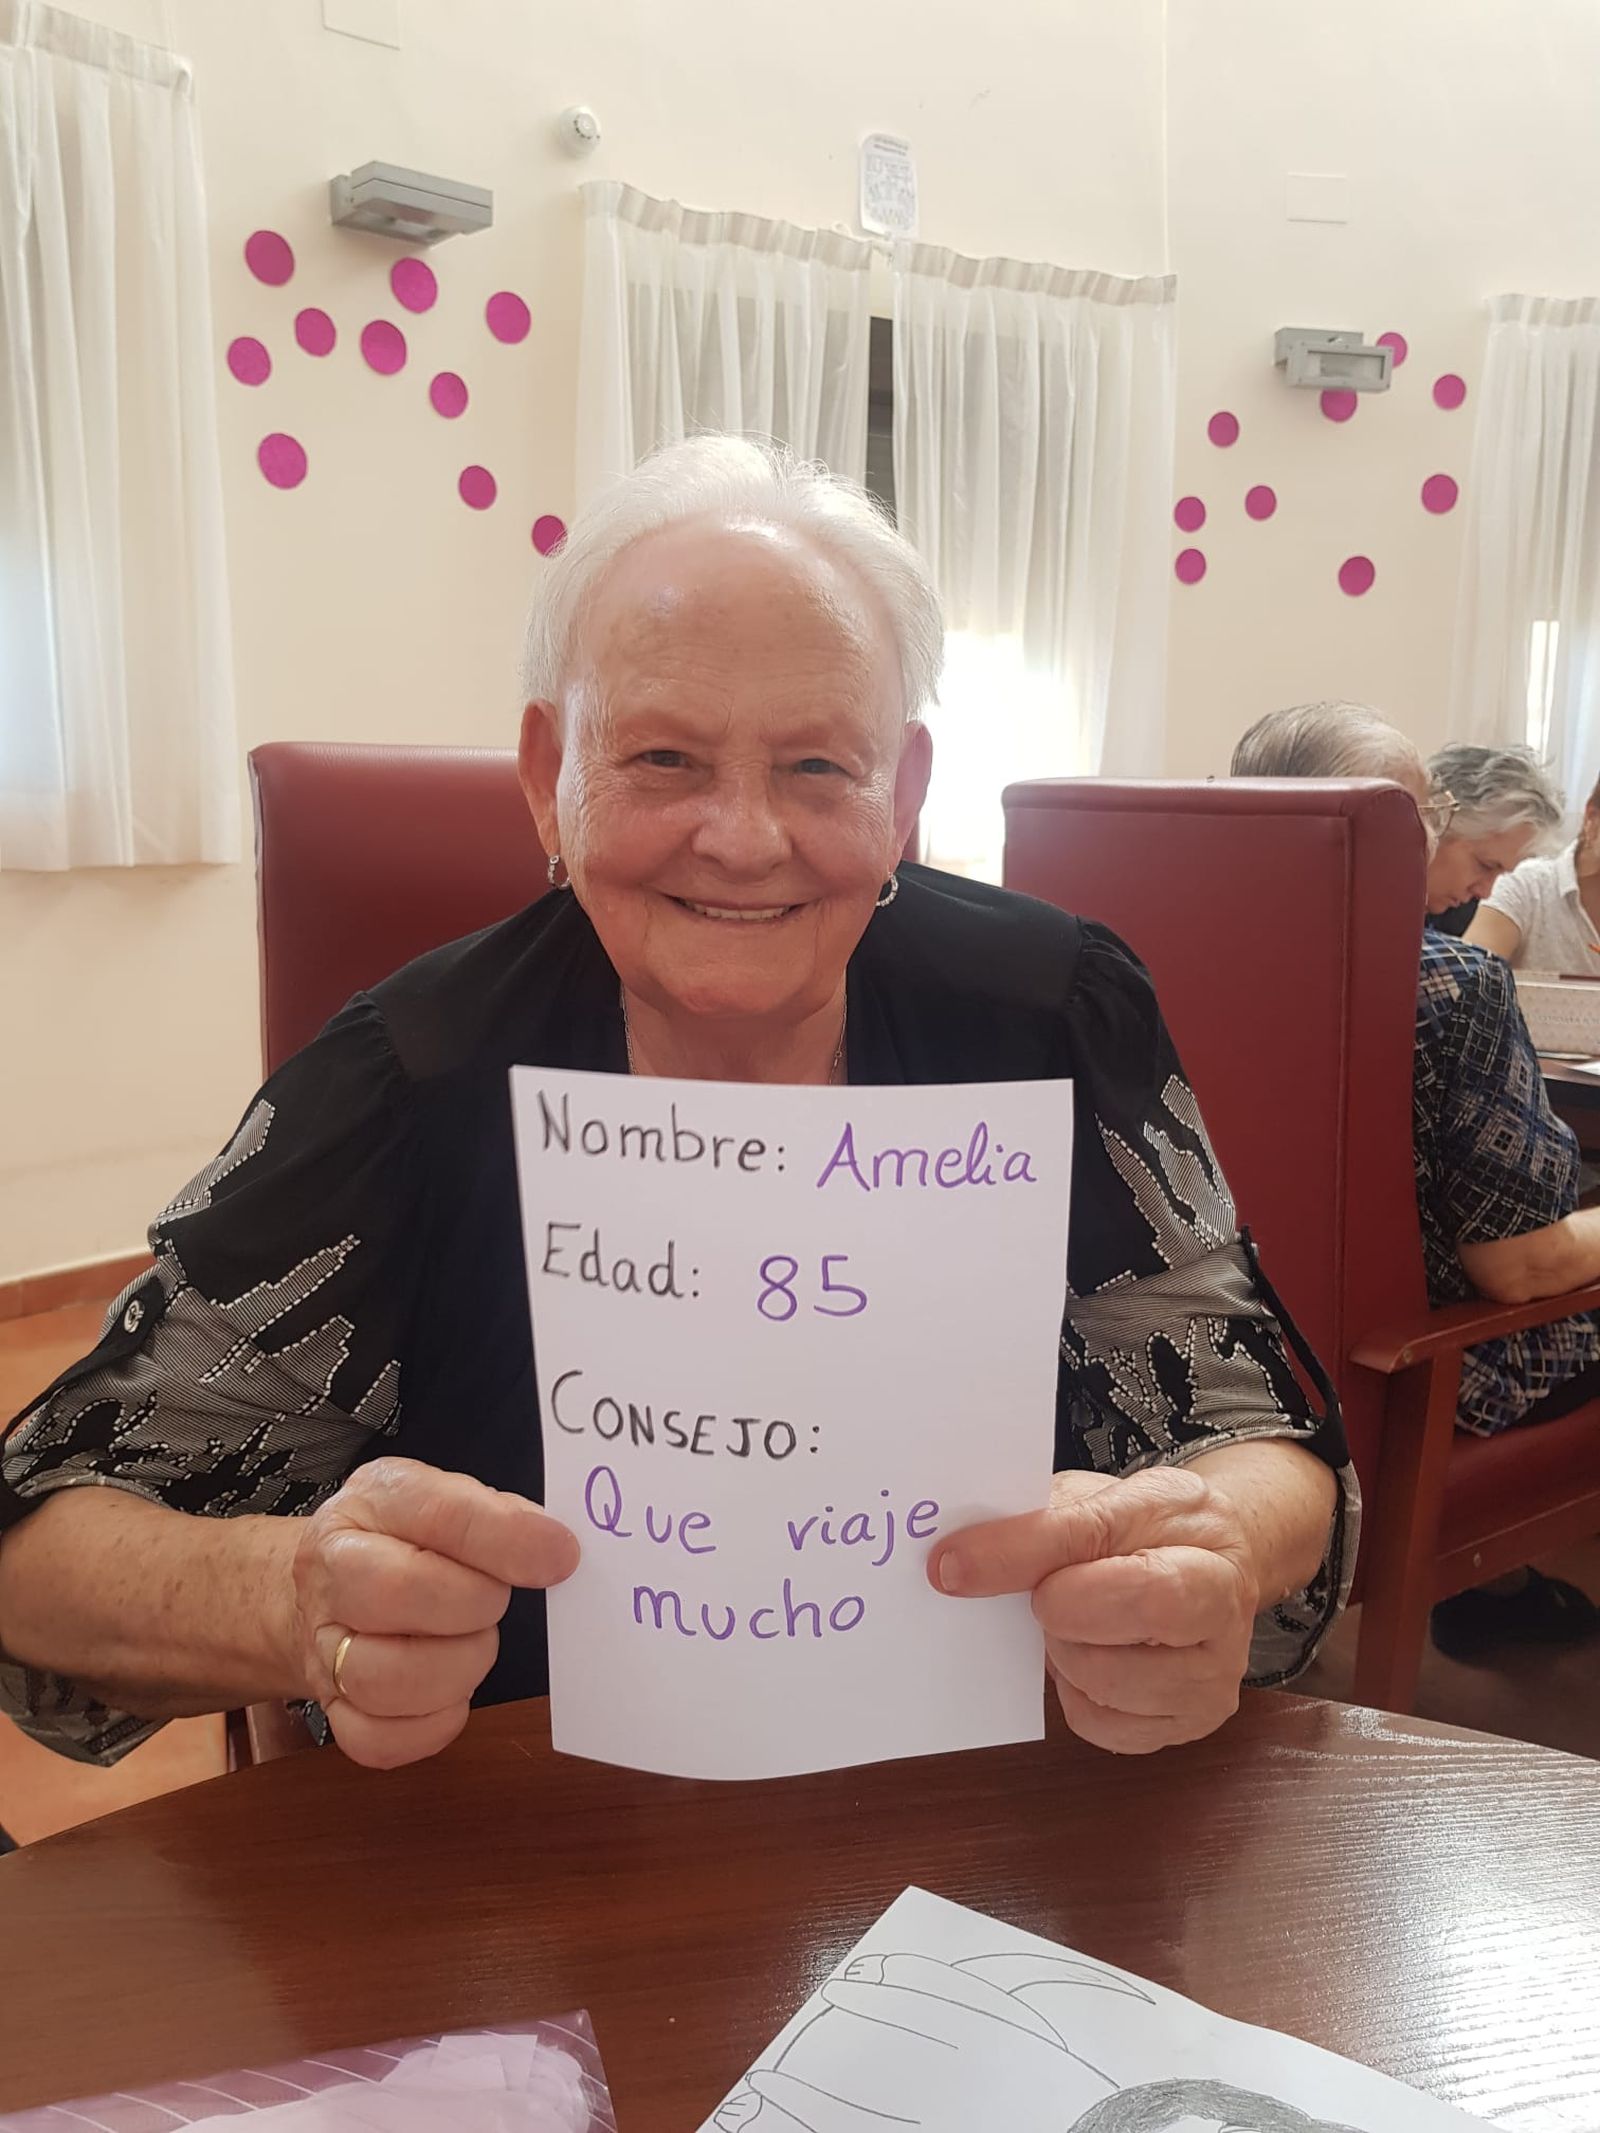 Nombre: Amelia
Edad: 85
CONSEJO:
Que viaje
mucho